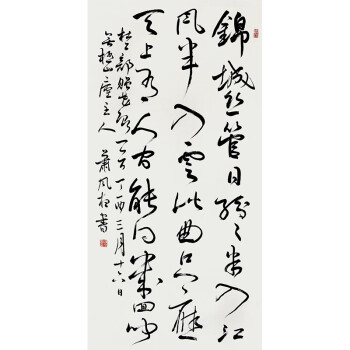 錦城絲管日紛〻半入江
風半入雲此曲只應
天上有人間能得幾回聞
贈花卿一首丁酉三月十六日
主人
蕭風書